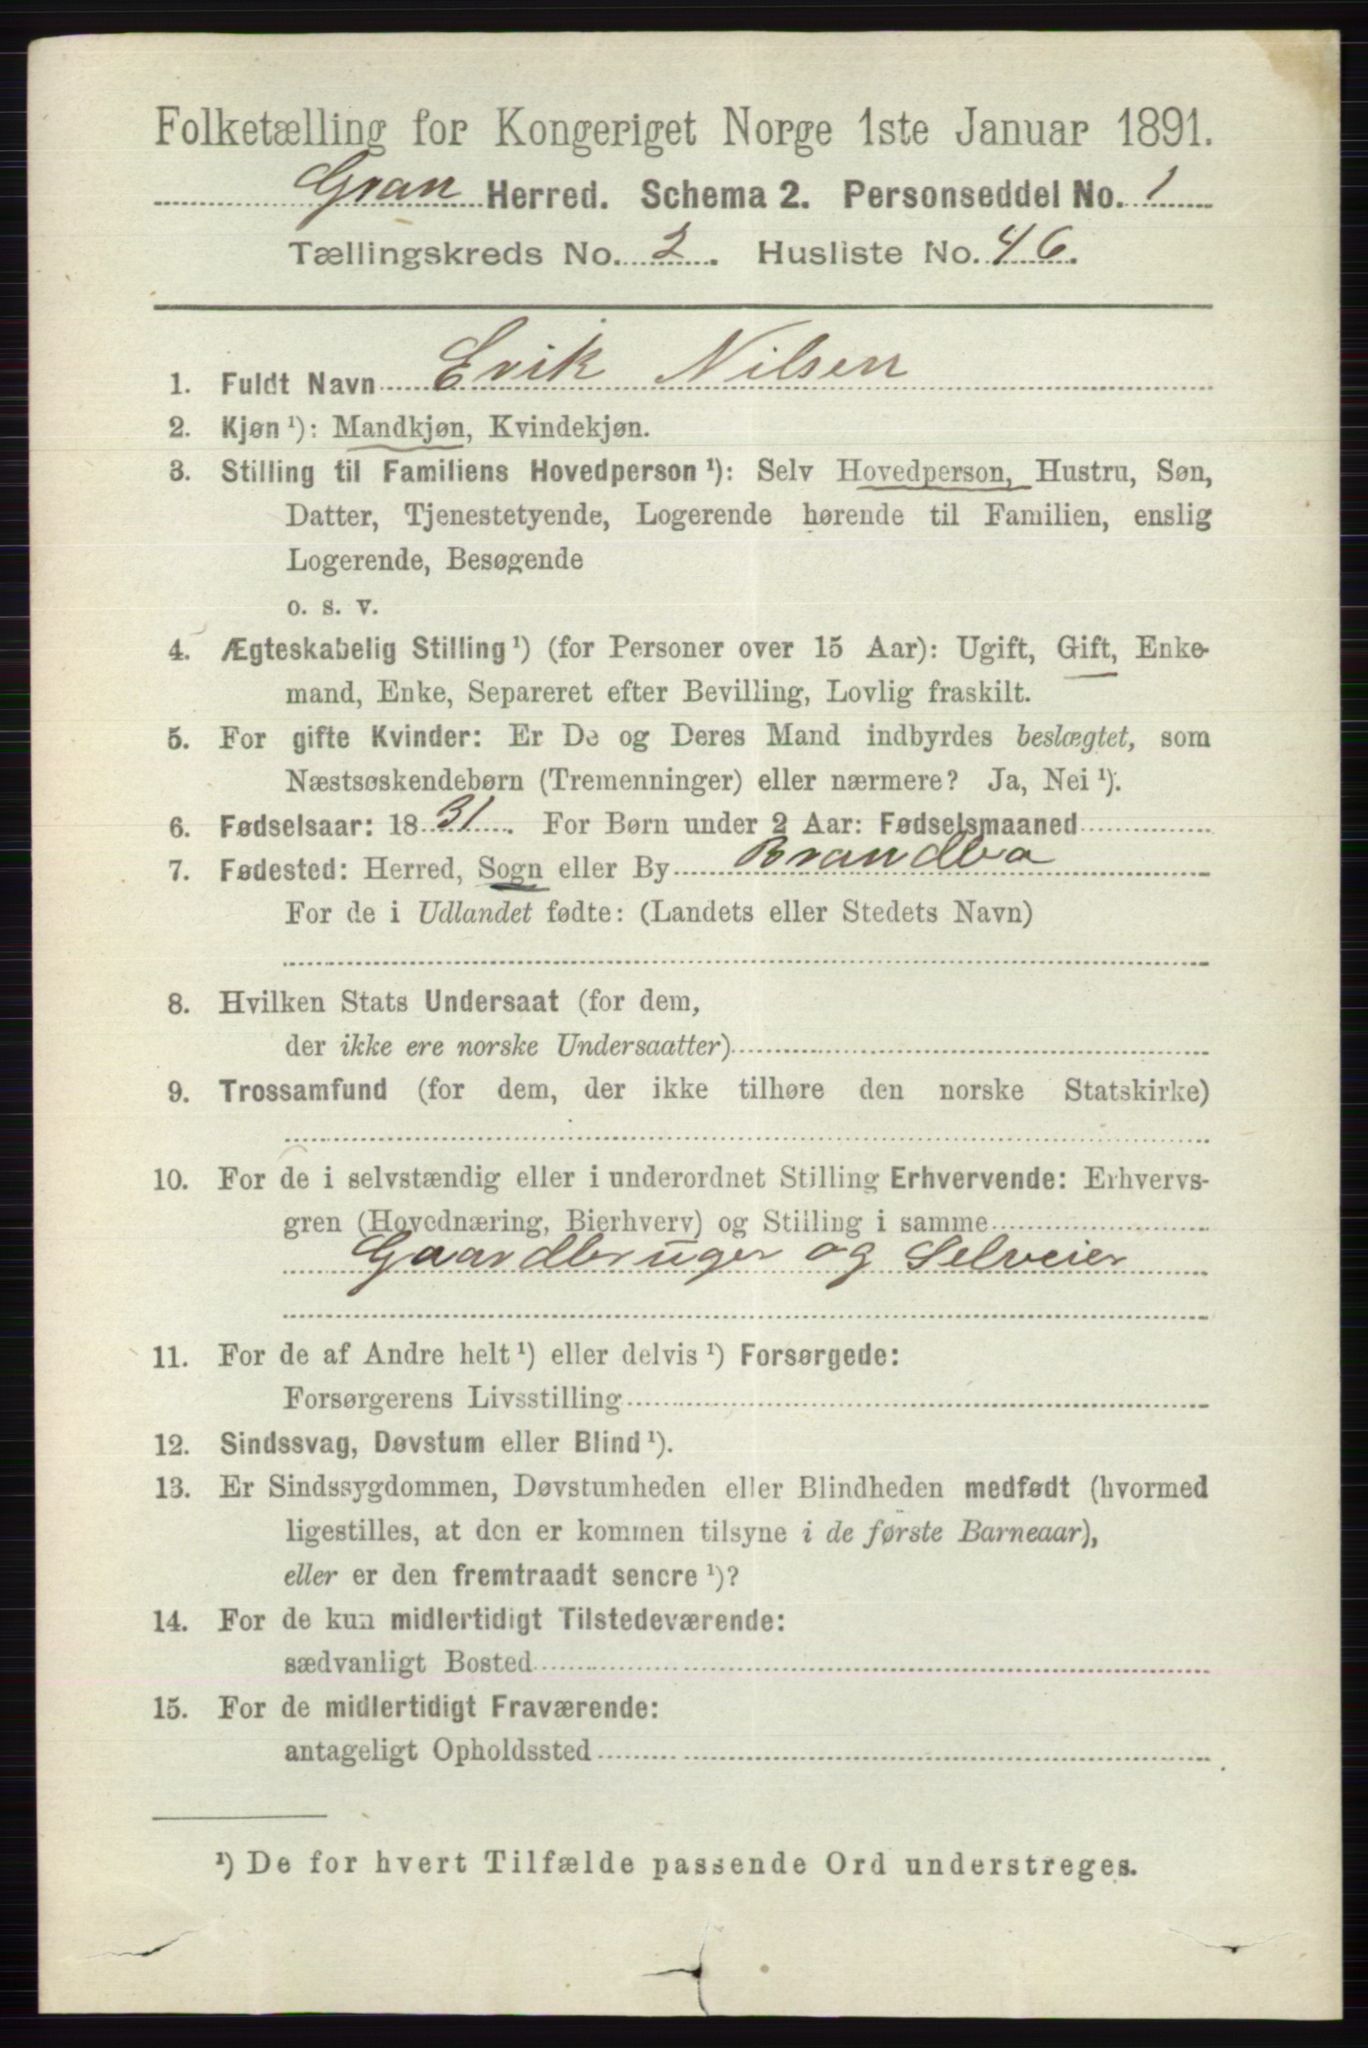 Folketælling for Kongeriget Norge 1ste Januar 1891.
Gran Herred. Schema 2. Personseddel No. 1
Tællingskreds No. 2. Husliste No. 46.
1. Fuldt Navn Erik Nilsen
2. Kjøn ¹): Mandkjøn, Kvindekjøn.
3. Stilling til Familiens Hovedperson ¹): Selv Hovedperson, Hustru, Søn,
Datter, Tjenestetyende, Logerende hørende til Familien, enslig
Logerende, Besøgende
o. s. v.
4. Ægteskabelig Stilling ¹) (for Personer over 15 Aar): Ugift, Gift, Enke-
mand, Enke, Separeret efter Bevilling, Lovlig fraskilt.
5. For gifte Kvinder: Er De og Deres Mand indbyrdes beslægtet, som
Næstsøskendebørn (Tremenninger) eller nærmere? Ja, Nei ¹).
6. Fødselsaar: 1831. For Børn under 2 Aar: Fødselsmaaned
7. Fødested: Herred, Sogn eller By Brandbo
For de i Udlandet fødte: (Landets eller Stedets Navn)
8. Hvilken Stats Undersaat (for dem,
der ikke ere norske Undersaatter)
9. Trossamfund (for dem, der ikke tilhøre den norske Statskirke)
10. For de i selvstændig eller i underordnet Stilling Erhvervende: Erhvervs-
gren (Hovednæring, Bierhverv) og Stilling i samme
Gaardbruger og Selveier
11. For de af Andre helt ¹) eller delvis ¹) Forsørgede:
Forsørgerens Livsstilling
12. Sindssvag, Døvstum eller Blind ¹).
13. Er Sindssygdommen, Døvstumheden eller Blindheden medfødt (hvormed
ligestilles, at den er kommen tilsyne i de første Barneaar),
eller er den fremtraadt senere ¹)?
14. For de kun midlertidigt Tilstedeværende:
sædvanligt Bosted
15. For de midlertidigt Fraværende:
antageligt Opholdssted
¹) De for hvert Tilfælde passende Ord understreges.